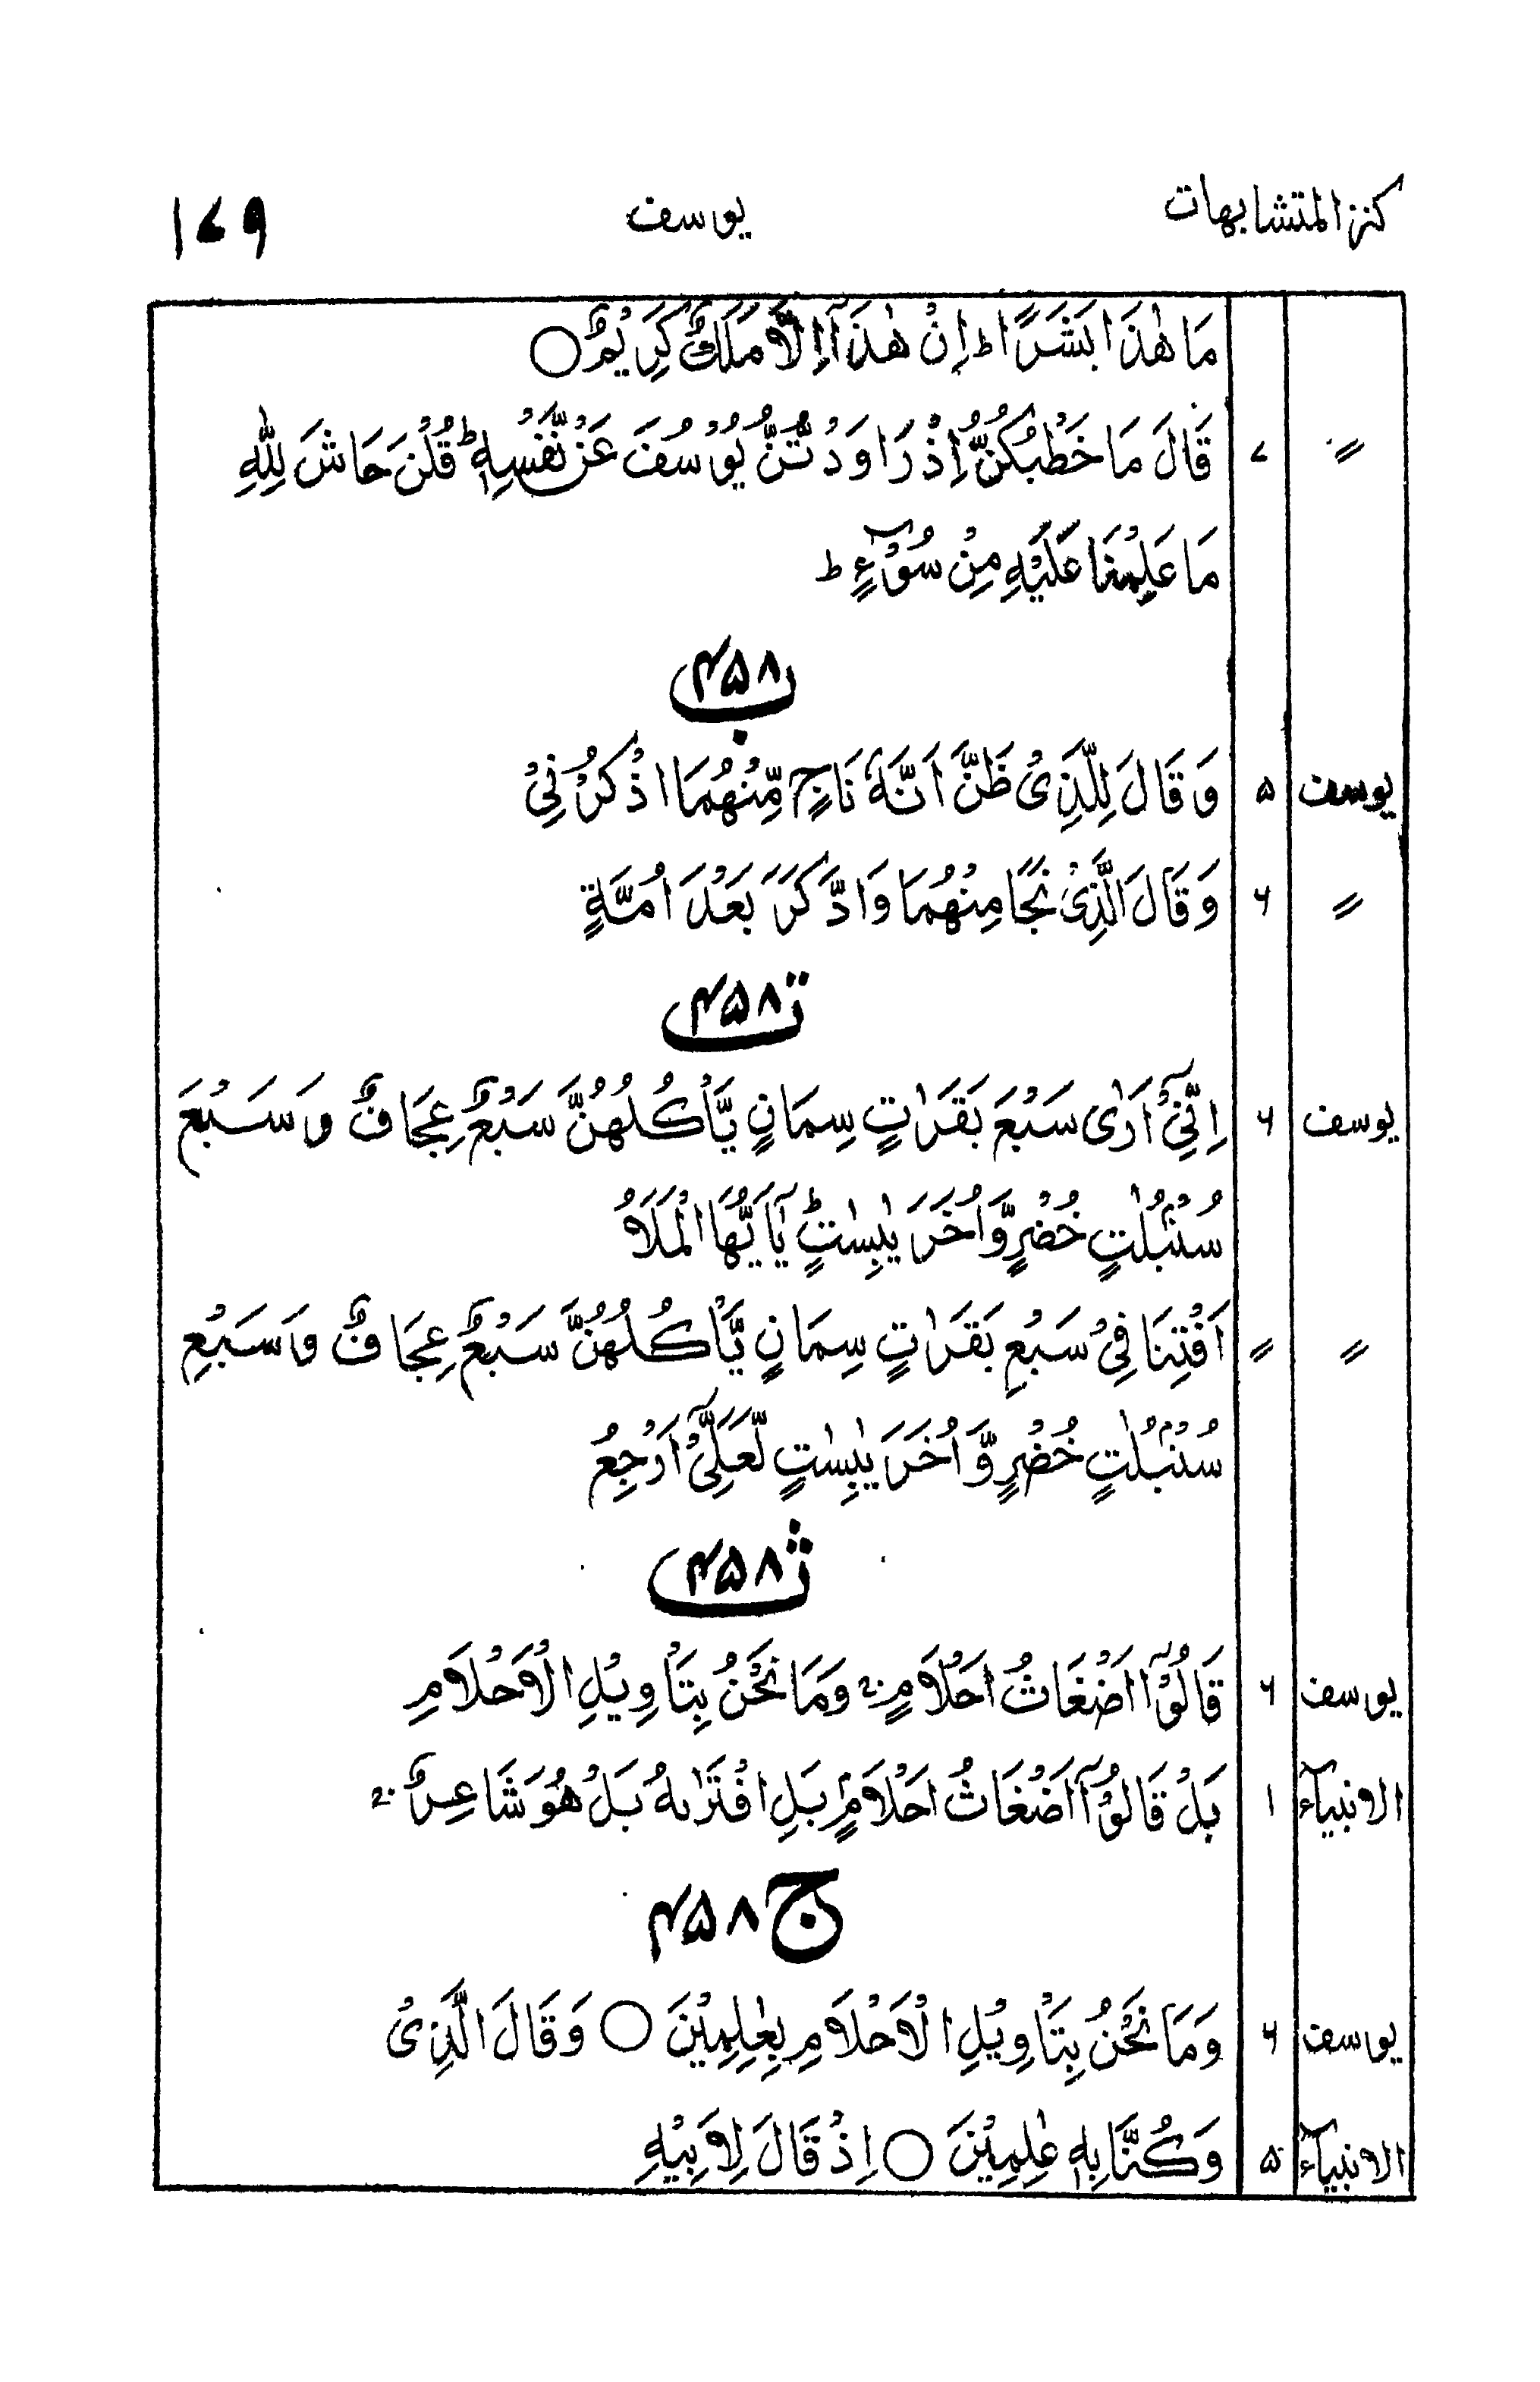 كنز المتشابهات یوسف ۱۷۹
مَا هٰذَا بَشَرًا ط اِنْ هٰذَآ اِلَّا مَلَكٌ كَرِيْمٌ ○
〃 ۷ قَالَ مَا خَطْبُكُنَّ اِذْ رَاوَدْتُّنَّ يُوْسُفَ عَنْ نَّفْسِهٖ ؕ قُلْنَ حَاشَ لِلّٰهِ
مَا عَلِمْنَا عَلَيْهِ مِنْ سُوْٓءٍ ط
ب ۴۵۸
یوسف ۵ وَقَالَ لِلَّذِىْ ظَنَّ اَنَّهٗ نَاجٍ مِّنْهُمَا اذْكُرْنِىْ
〃 ۶ وَقَالَ الَّذِىْ نَجَا مِنْهُمَا وَادَّكَرَ بَعْدَ اُمَّةٍ
ت ۴۵۸
یوسف ۶ اِنِّىْٓ اَرٰى سَبْعَ بَقَرٰتٍ سِمَانٍ يَّاْكُلُهُنَّ سَبْعٌ عِجَافٌ وَسَبْعَ
سُنْۢبُلٰتٍ خُضْرٍ وَّاُخَرَ يٰبِسٰتٍ ؕ يٰٓاَيُّهَا الْمَلَاُ
〃 〃 اَفْتِنَا فِىْ سَبْعِ بَقَرٰتٍ سِمَانٍ يَّاْكُلُهُنَّ سَبْعٌ عِجَافٌ وَسَبْعِ
سُنْۢبُلٰتٍ خُضْرٍ وَّاُخَرَ يٰبِسٰتٍ لَّعَلِّىْٓ اَرْجِعُ
ث ۴۵۸
یوسف ۶ قَالُوْٓا اَضْغَاثُ اَحْلَامٍ ۚ وَمَا نَحْنُ بِتَاْوِيْلِ الْاَحْلَامِ
الانبیآء ۱ بَلْ قَالُوْٓا اَضْغَاثُ اَحْلَامٍۭ بَلِ افْتَرٰىهُ بَلْ هُوَ شَاعِرٌ ۚ
ج ۴۵۸
یوسف ۶ وَمَا نَحْنُ بِتَاْوِيْلِ الْاَحْلَامِ بِعٰلِمِيْنَ ○ وَقَالَ الَّذِىْ
الانبیآء ۵ وَكُنَّا بِهٖ عٰلِمِيْنَ ○ اِذْ قَالَ لِاَبِيْهِ